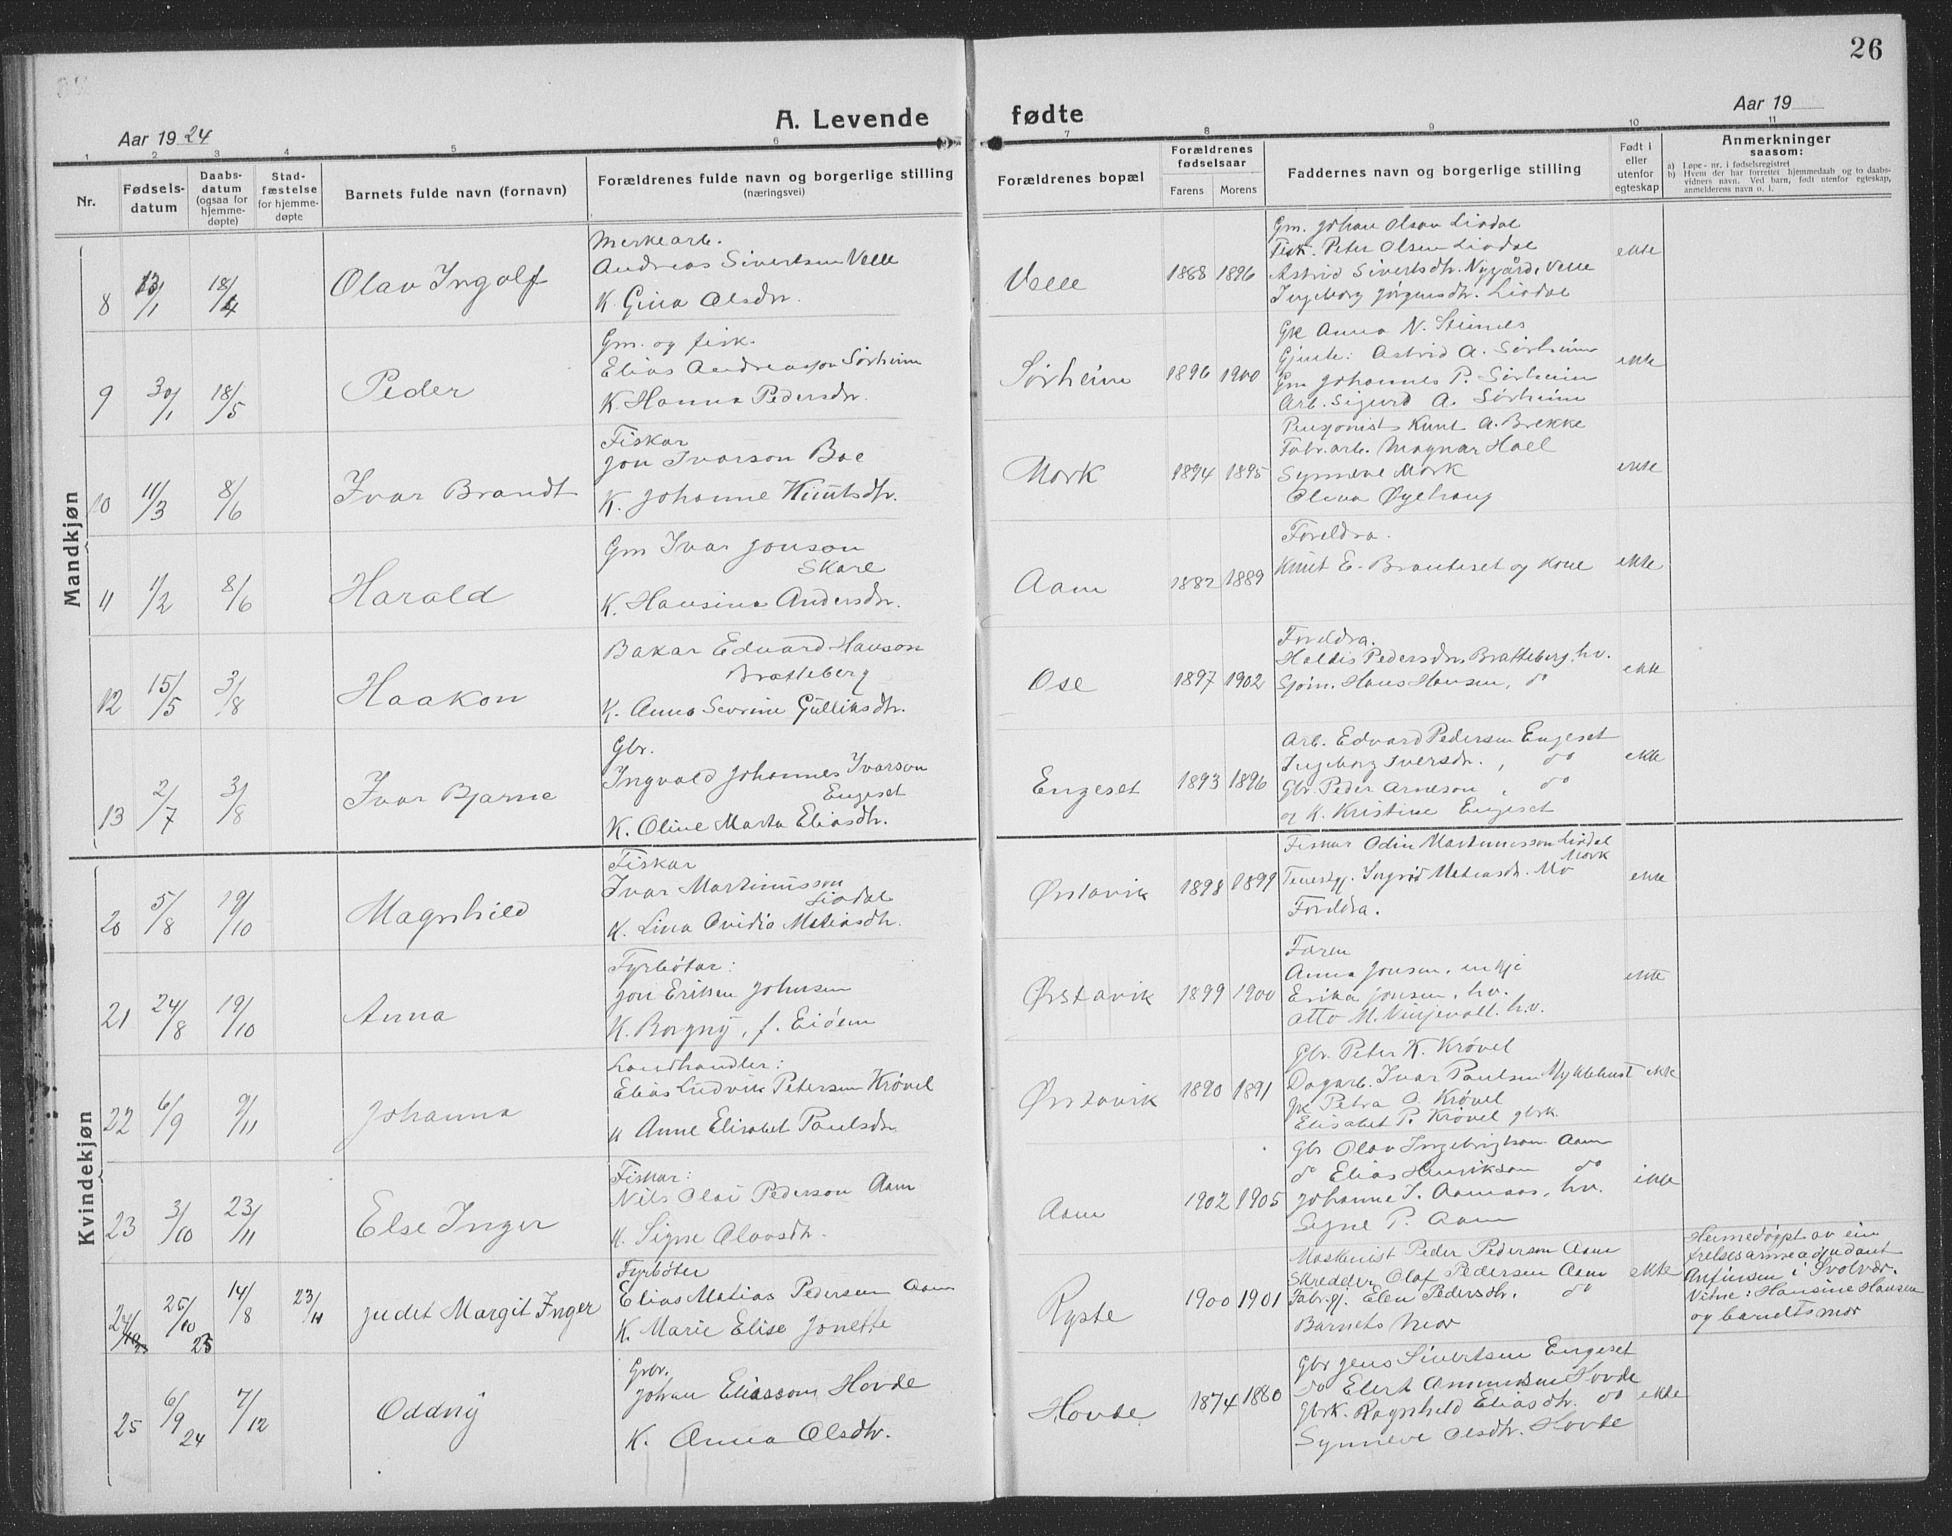 26
A. Levende fødte
Aar 1924
Aar 19
1 2 3 4 5 6 7 8 9 10 11
Nr.
Fødsels-
datum
Daabs-
datum
(ogsaa for
hjemme-
døpte)
Stad-
fæstelse
for hjemme-
døpte
Barnets fulde navn (fornavn)
Forældrenes fulde navn og borgerlige stilling
(næringsvei)
Forældrenes bopæl
Forældrenes
fødselsaar
Farens Morens
Faddernes navn og borgerlige stilling
Født i
eller
utenfor
egteskap
Anmerkninger
saasom:
a) Løpe-nr. i fødselsregistret
b) Hvem der har forrettet hjemmedaab og to daabs-
vidners navn. Ved barn, født utenfor egteskap,
anmelderens navn o. l.
Mandkjøn
8 13/1 18/4 Olav Ingolf
Merkearb.
Andreas Sivertsen Velle
K. Gina Olsdr.
Velle 1888 1896
Gm. Johan Olsen Liadal
Fisk. Peter Olsen Liadal
Astrid Sivertsdtr. Nygård, Velle
Ingeborg Jørgensdtr. Liadal
ekte
9 30/1 18/5 Peder
Gm. og fisk.
Elias Andreasson Sørheim
K. Hanna Pedersdr.
Sørheim 1896 1900
Gk Anna N. Steinnes
Gjente: Astrid A. Sørheim
Gm Johannes P. Sørheim
Arb. Sigurd A. Sørheim
ekte
10 11/3 8/6 Ivar Brandt
Fiskar
Jon Ivarson Boe
K. Johanne Knutsdtr.
Mork 1894 1895
Pensjonist Knut A. Brekke
Fabr.arb. Magnar Hoel
Synneve Mork
Olina Øyehaug
ekte
11 1/2 8/6 Harald
Gm Ivar Jonson
Skare
K. Hansine Andersdr.
Aam 1882 1889
Foreldra.
Knut E. Brauteset og kone
ekte
12 15/5 3/8 Haakon
Bakar Edvard Hanson
Bratteberg
K. Anna Sevrine Gulliksdtr.
Ose 1897 1902
Foreldra.
Haldis Pedersdr. Bratteberg, hv.
Sjøm. Hans Hansen, do
ekte
13 2/7 3/8 Ivar Bjarne
Gbr.
Ingvald Johannes Ivarson
Engeset
K. Oline Marta Eliasdtr.
Engeset 1893 1896
Arb. Edvard Pedersen Engeset
Ingeborg Iversdr., do
Gbr. Peder Arneson, do
og K. Kristine Engeset
ekte
Kvindekjøn
20 5/8 19/10 Magnhild
Fiskar
Ivar Martinusson
Liadal
K. Lina Ovidia Matiasdtr.
Ørstavik 1898 1899
Fiskar Odin Martinusson Liadal
Mork
Tenestgj. Ingrid Matiasdr. Mo
Foreldra.
ekte
21 24/8 19/10 Anna
Fyrbøtar:
Jon Eriksen Johnsen
K. Borgny, f. Eidem
Ørstavik 1899 1900
Faren
Anna Jonsen, enkje
Erika Jonsen, hv.
Otto M. Vinjevoll. h.v.
ekte
22 6/9 9/11 Johanna
Landhandler:
Elias Ludvik Petersen Krøvel
K Anne Elisabet Paulsdr.
Ørstavik 1890 1891
Gbr. Peter K. Krøvel
Dagarb. Ivar Paulsen Myklebust
gk Petra O. Krøvel
Elisabet P. Krøvel gbrk.
ekte
23 3/10 23/11 Else Inger
Fiskar:
Nils Olai Pederson Aam
K. Signe Olavsdtr.
Aam 1902 1905
Gbr Olav Ingebrigtson Aam
do Elias Henrikson do
Johanne I. Aamaas, hv.
Signe P. Aam
ekte
24 25/10 23 14/8 23/11 Judet Margit Inger
Fyrbøter
Elias Matias Pedersen Aam
K. Marie Elise Jonette
Ryste 1900 1901
Maskinist Peder Pederson Aam
Skredder Olaf Pedersen Aam
Fabr.gj. Elen Pedersdtr. do
Barnets mor
ekte
Heimedøypt av ein
frelsesarmeadjudant
Anfinsen i Svolvær.
Vitne: Hansine Hansen
og barnets mor
25 6/9 24 7/12 Oddny
Grbr.
Johan Eliassom Hovde
K. Anna Olsdtr.
Hovde 1874 1880
Gbr Jens Sivertsen Engeset
do Elert Ammundsen Hovde
Gbrk. Ragnhild Eliasdtr. do
Synneve Olsdtr. Hovde
ekte